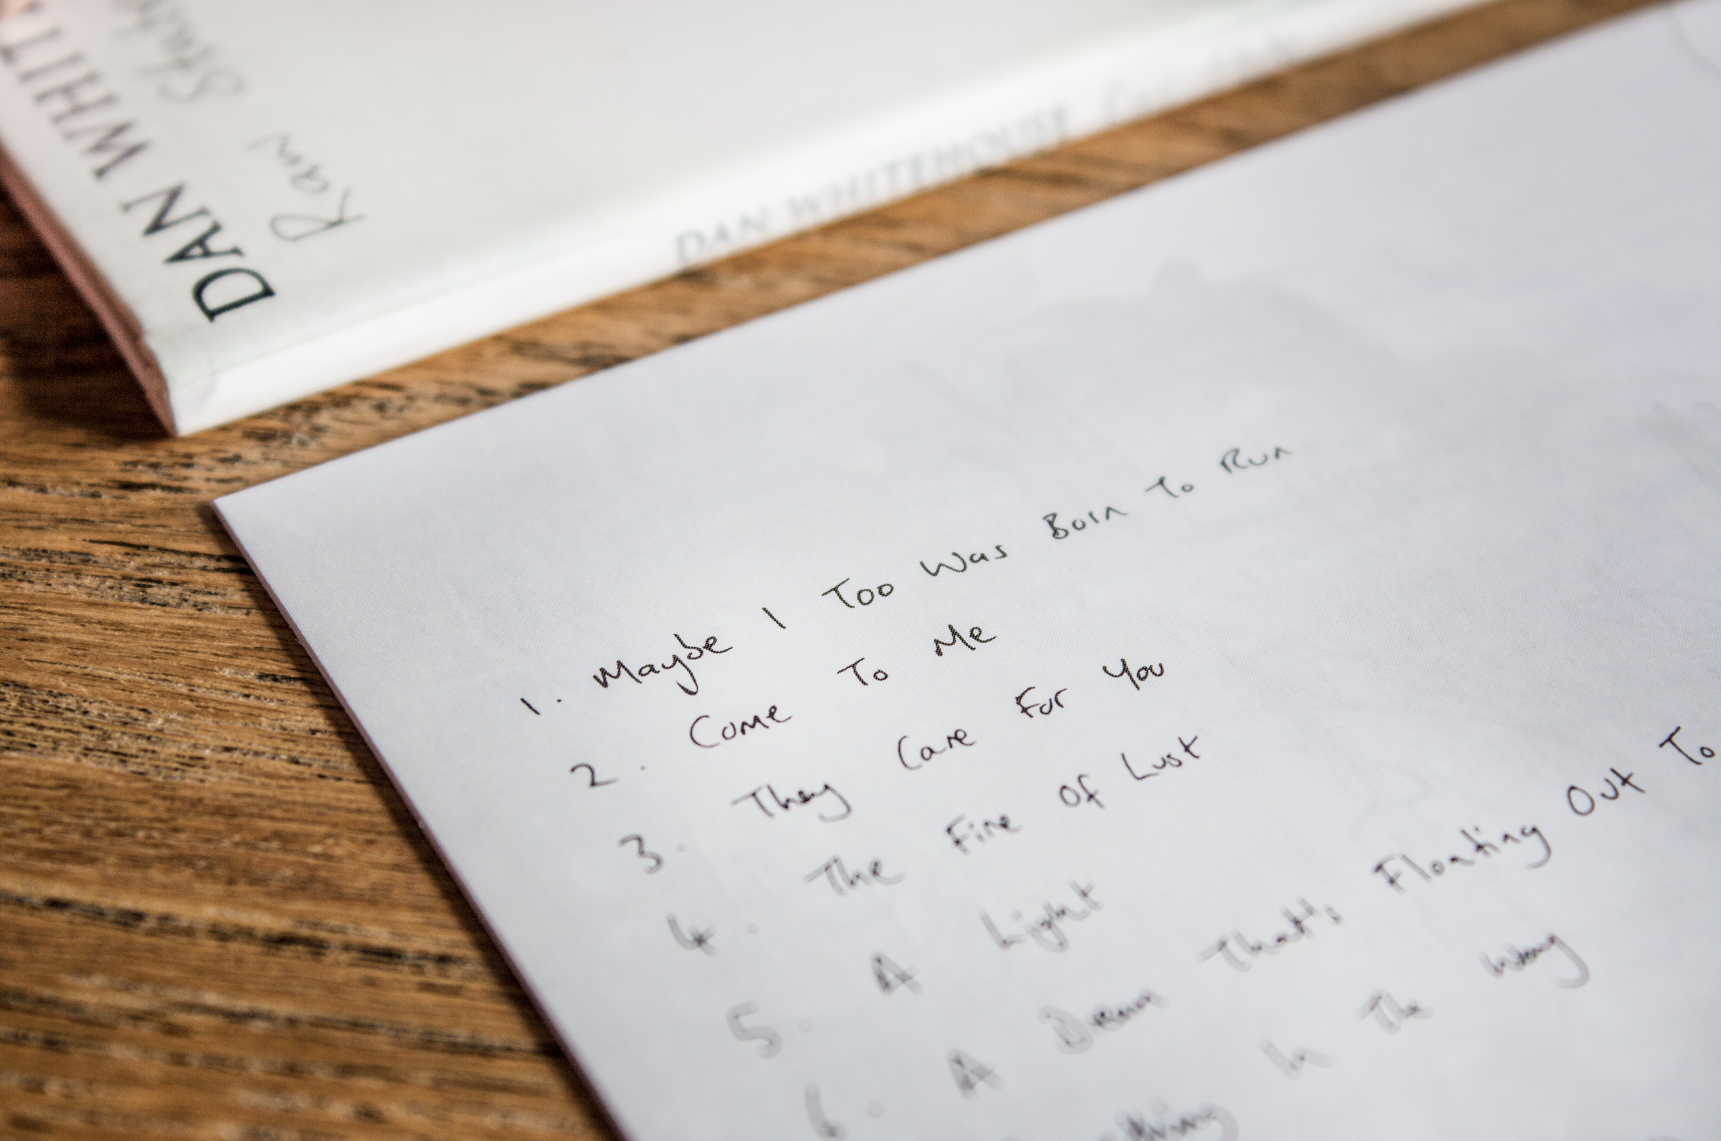 DAN
Raw
DAN WHITEHOUSE
1. Maybe I Too Was Born To Run
2. Come To Me
3. They Care For You
4. The Fire Of Lust
5. A Light
6. A Dream That's Floating Out To
In The Way